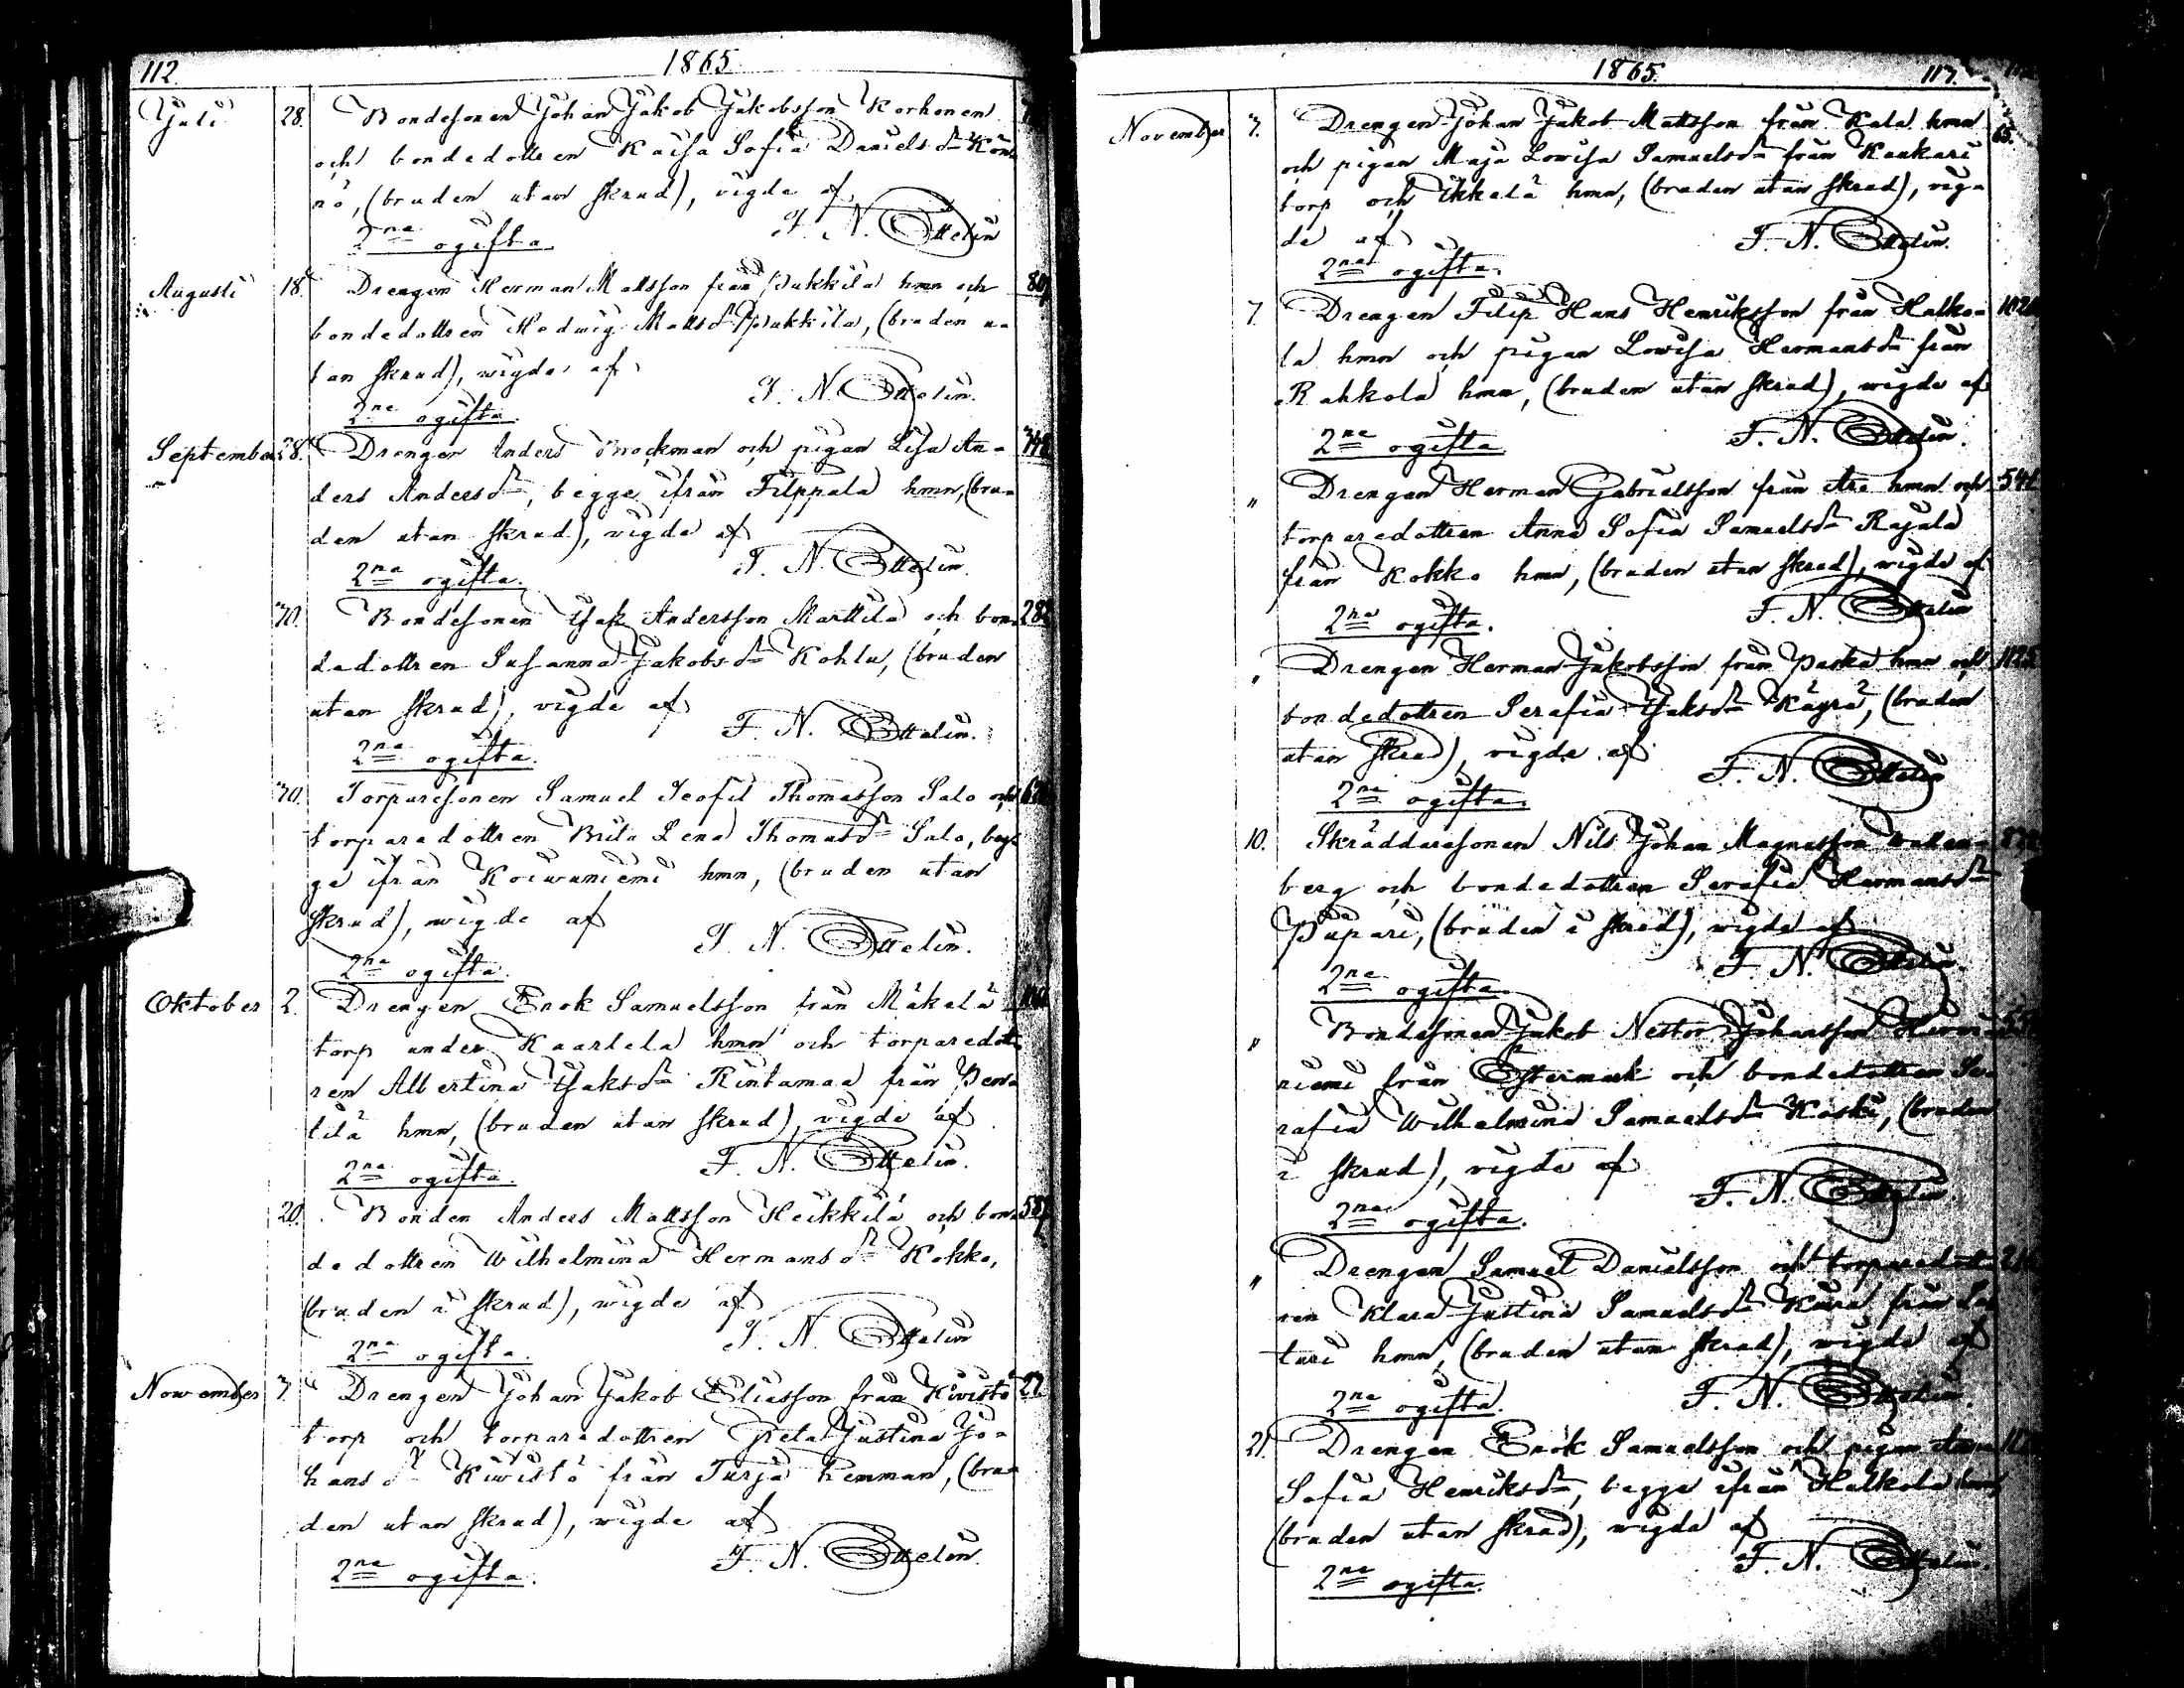 112.
1865.
Juli 28. Bondesonen Johan Jakob Jakobsson Korhonen
och bondedottren Kaisa Sofia Danielsdr Kön-
nö, (bruden utan skrud), vigde af
2ne ogifta. F. N. Ottelin
Augusti 18. Drengen Herman Mattsson från Pukkila hmn och 80
bondedottren Hedwig Mattsdr Pukkila, (bruden u-
tan skrud), wigde af
2ne ogifta. F. N. Ottelin.
September 28. Drengen Anders Brockman och pigan Lisa An-
ders Andersdr, begge ifrån Filppula hmn, (bru-
den utan skrud), vigde af
2ne ogifta. F. N. Ottelin.
Bondesonen Isak Andersson Marttila och bon-
dedottren Susanna Jakobsdr Kohlu, (bruden
utan skrud), vigde af
2ne ogifta. F. N. Ottelin.
Torparesonen Samuel Teofil Thomasson Salo och
torparedottren Brita Lena Thomasdr Salo, beg-
ge ifrån Koiwuniemi hmn, (bruden utan
skrud), wigde af
2ne ogifta. F. N. Ottelin.
Oktober 2. Drengen Enok Samuelsson från Mäkelä
torp under Kaarlela hmn och torparedott-
ren Albertina Isaksdr Rintamaa från Pent-
tilä hmn, (bruden utan skrud), vigde af
2ne ogifta. F. N. Ottelin.
20. Bonden Anders Mattsson Heikkilä och bon-
dedottren Wilhelmina Hermansdr Kokko,
(bruden i skrud), wigde af
2ne ogifta. F. N. Ottelin
November 7. Drengen Johan Jakob Eliasson från Kivistö 27.
torp och torparedottren Greta Justina Jo-
hansdr Kiwistö från Turja hemman, (bru-
den utan skrud), wigde af
2ne ogifta. F. N. Ottelin.
1865. 117.
November 7. Drengen Johan Jakob Mattsson från Kala hmn 65.
och pigan Maja Lowisa Samuelsdr från Kankari
torp och Ikkala hmn, (bruden utan skrud), vig-
de af F. N. Ottelin.
2ne ogifta.
7. Drengen Filip Hans Henriksson från Halko-
la hmn och pigan Lowisa Hermansdr från
Rahkola hmn, (bruden utan skrud), wigde af
2ne ogifta F. N. Ottelin.
" Drengen Herman Gabrielsson från Ara hmn och 541
torparedottren Anna Sofia Samuelsdr Rajala
från Kokko hmn, (bruden utan skrud), wigde af
2ne ogifta. F. N. Ottelin
" Drengen Herman Jakobsson från Paska hmn och
bondedottren Serafia Isaksdr Käyrä, (bruden
utan skrud), vigde af
2ne ogifta. F. N. Ottelin
10. Skräddaresonen Nils Johan Magnusson Wallen-
berg och bondedottren Serafia Hermansdr
Pupari, (bruden i skrud), wigde af
2ne ogifta F. N. Ottelin.
" Bondesonen Jakob Nestor Johansson Hirvi-
niemi från Östermark och bondedottren Se-
rafia Wilhelmina Samuelsdr Koski, (bruden
i skrud), vigde af
2ne ogifta. F. N. Ottelin.
" Drengen Samuel Danielsson och torparedott-
ren Klara Justina Samuelsdr Kiura från La-
turi hmn, (bruden utan skrud), vigde af
2ne ogifta. F. N. Ottelin.
21. Drengen Enok Samuelsson och pigan Anna
Sofia Henriksdr, begge ifrån Halkola hmn,
(bruden utan skrud), wigde af
2ne ogifta. F. N. Ottelin.